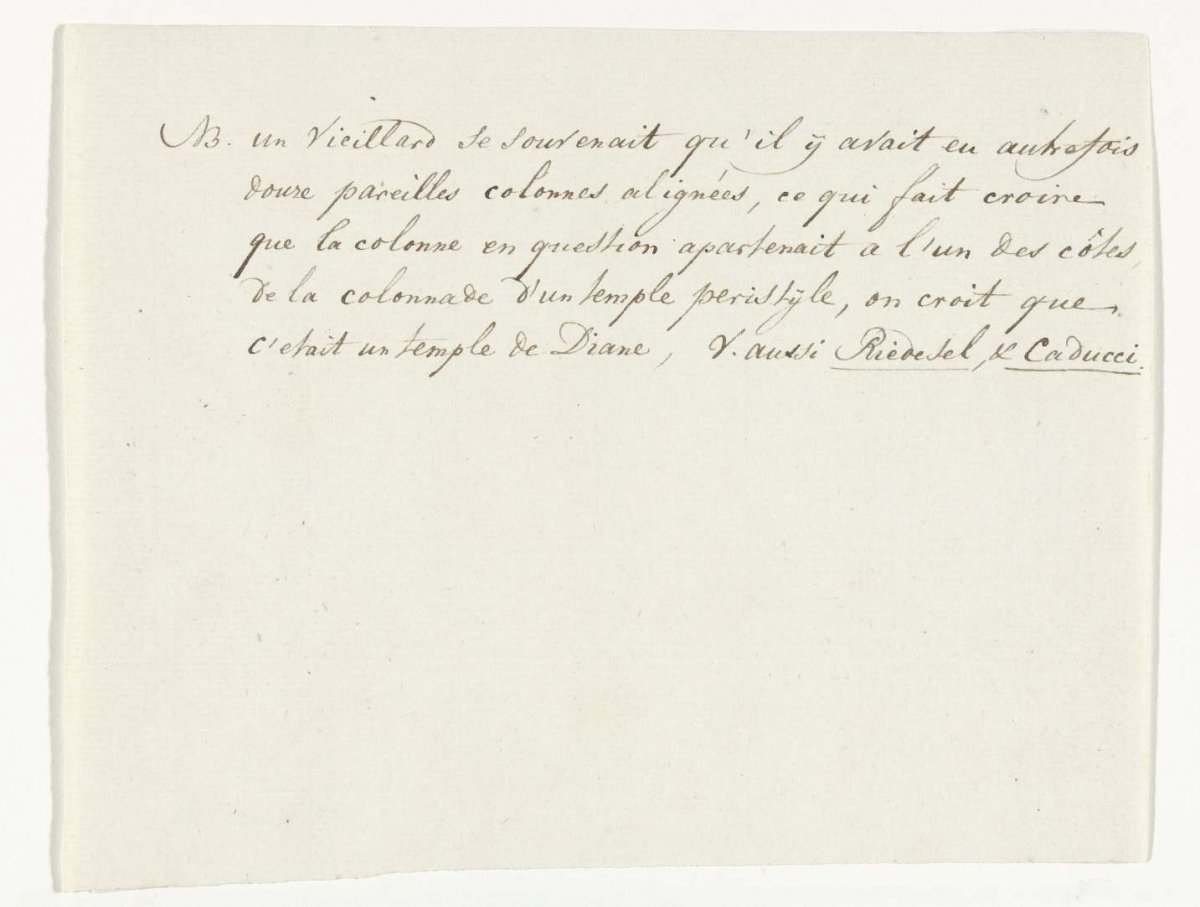 NB. un Vieillard se souvenait qu'il ÿ avait eu autrefois
douze pareilles colonnes alignées, ce qui fait croire
que la colonne en question apartenait a l'un des côtes,
de la colonnade d'un temple peristÿle, on croit que
c'etait un temple de Diane, V. aussi Riedesel, & Caducci.